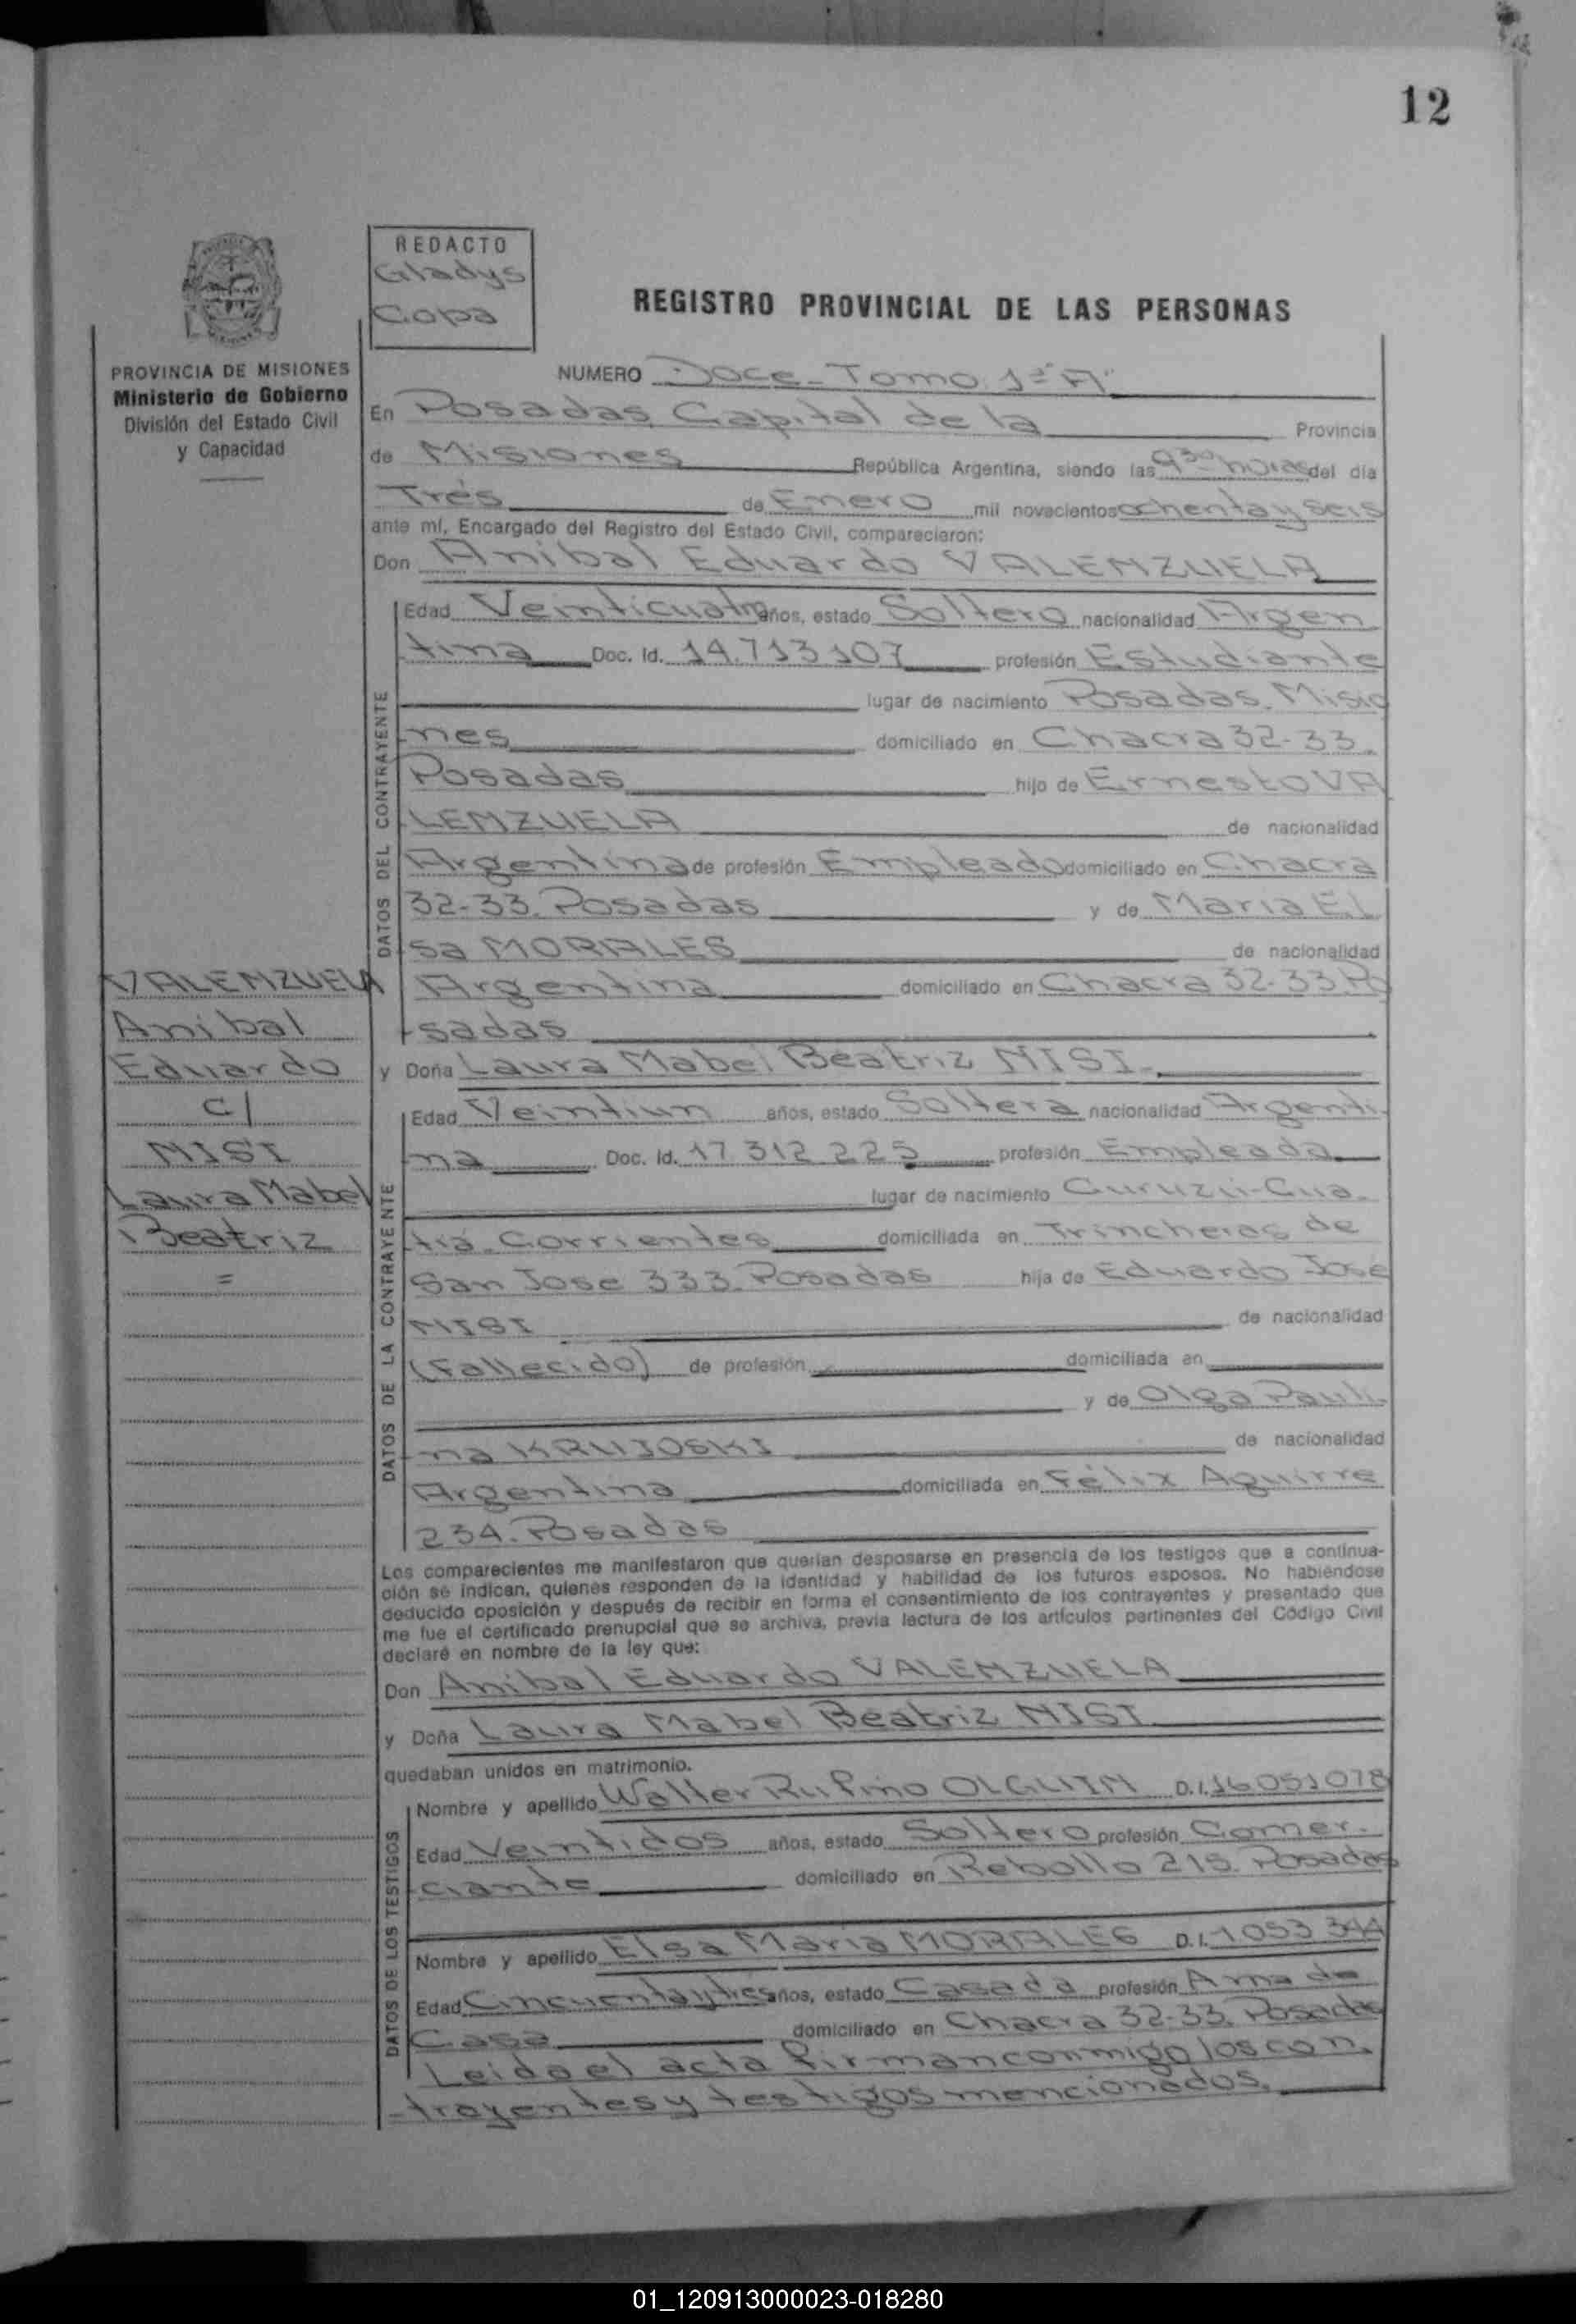 12
REDACTO
Gladys
Copa
REGISTRO PROVINCIAL DE LAS PERSONAS
PROVINCIA DE MISIONES
Ministerio de Gobierno
División del Estado Civil
y Capacidad
NUMERO Doce - Tomo 1º "A"
En Posadas, Capital de la Provincia
de Misiones República Argentina, siendo las 9 30 horas del día
Tres de Enero mil novecientos ochenta y seis
ante mí, Encargado del Registro del Estado Civil, comparecieron:
Don Anibal Eduardo VALENZUELA
DATOS DEL CONTRAYENTE
Edad Veinticuatro años, estado Soltero nacionalidad Argen
tina Doc. Id. 14.713 107 profesión Estudiante
lugar de nacimiento Posadas. Misio
nes domiciliado en Chacra 32-33.
Posadas hijo de Ernesto VA
LENZUELA de nacionalidad
Argentina de profesión Empleado domiciliado en Chacra
32-33. Posadas y de Maria El
sa MORALES de nacionalidad
Argentina domiciliado en Chacra 32-33. Po
sadas
VALENZUELA
Anibal
Eduardo
c/
NISI
Laura Mabel
Beatriz
=
y Doña Laura Mabel Beatriz NISI.
DATOS DE LA CONTRAYENTE
Edad Veintiun años, estado Soltera nacionalidad Argenti
na Doc. Id. 17 312 225 profesión Empleada
lugar de nacimiento Curuzú-Cua-
tiá. Corrientes domiciliada en Trincheras de
San Jose 333. Posadas hija de Eduardo José
NISI de nacionalidad
(Fallecido) de profesión domiciliada en
y de Olga Pauli
na KRUJOSKI de nacionalidad
Argentina domiciliada en Félix Aguirre
234. Posadas
Los comparecientes me manifestaron que querían desposarse en presencia de los testigos que a continua-
ción se indican, quienes responden de la identidad y habilidad de los futuros esposos. No habiéndose
deducido oposición y después de recibir en forma el consentimiento de los contrayentes y presentado que
me fue el certificado prenupcial que se archiva, previa lectura de los artículos pertinentes del Código Civil
declaré en nombre de la ley que:
Don Anibal Eduardo VALENZUELA
y Doña Laura Mabel Beatriz NISI
quedaban unidos en matrimonio.
DATOS DE LOS TESTIGOS
Nombre y apellido Walter Rufino OLGUIN D.I. 16 051 078
Edad Veintidos años, estado Soltero profesión Comer-
ciante domiciliado en Rebollo 215. Posadas
Nombre y apellido Elsa Maria MORALES D.I. 1 053 344
Edad Cincuenta y tres años, estado Casada profesión Ama de
Casa domiciliado en Chacra 32-33. Posadas
Leida el acta firman conmigo los con
trayentes y testigos mencionados.
01_120913000023-018280